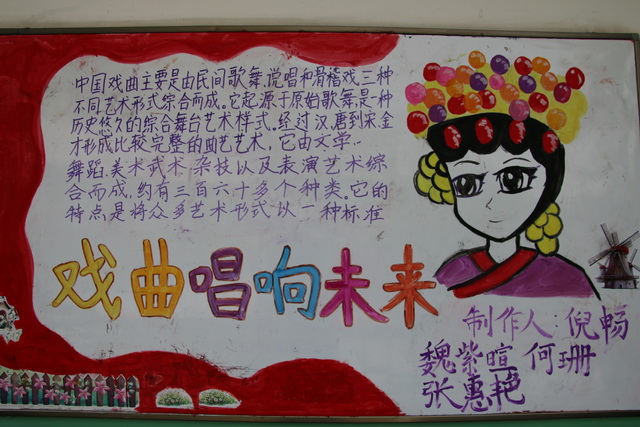 中国戏曲主要是由民间歌舞、说唱和滑稽戏三种
不同艺术形式综合而成。它起源于原始歌舞，是一种
历史悠久的综合舞台艺术样式。经过汉、唐到宋、金
才形成比较完整的曲艺艺术，它由文学、
舞蹈、美术、武术、杂技以及表演艺术综
合而成，约有三百六十多个种类。它的
特点是将众多艺术形式以一种标准
戏曲唱响未来
制作人：倪畅
魏紫暄 何珊
张惠艳